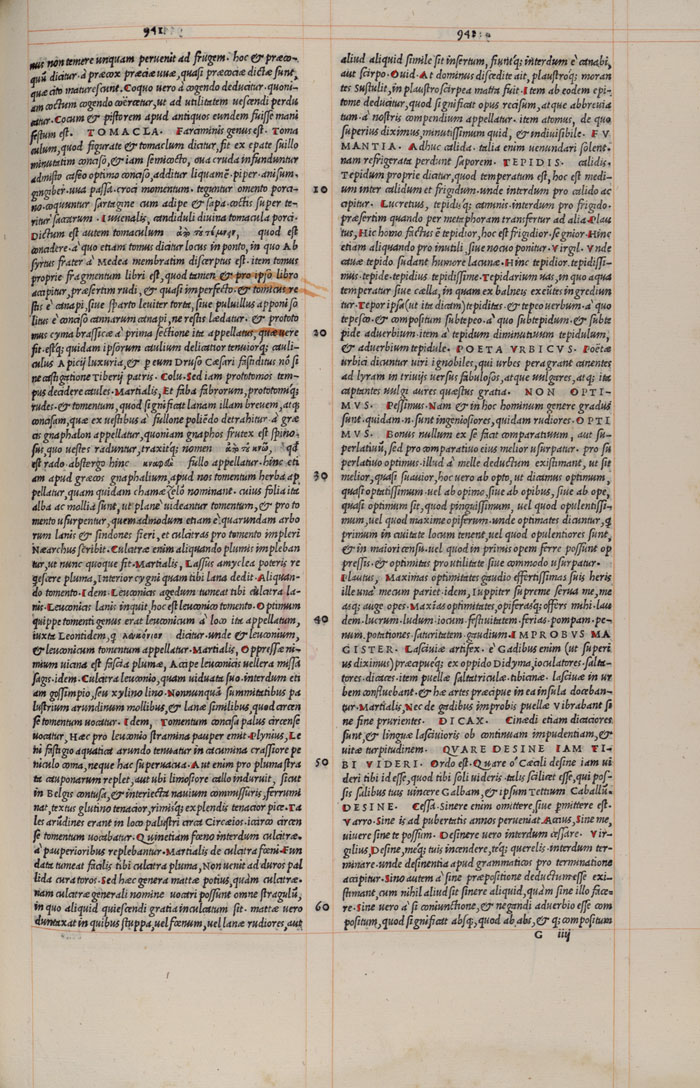 941
nus non temere unquam peruenit ad frugem. hoc & præco-
quū dicitur à præcox præciæ uuæ, quasi præcociæ dictæ sunt,
quæ cito maturescunt. Coquo uero à cogendo deducitur. quoni-
am coctum cogendo coërcetur, ut ad utilitatem uescendi perdu
catur. Cocum & pistorem apud antiquos eundem fuisse mani
festum est. TOMACLA. Farciminis genus est. Toma
culum, quod figurate & tomaclum dicitur, fit ex epate suillo
minutatim conciso, & iam semicocto, oua cruda infunduntur
admisto caseo optimo conciso, additur liquamē. piper. anisum.
gingiber. uua passa. croci momentum. teguntur omento porci-
no. coquuntur sartagine cum adipe & sapa. coctis super te-
ritur saccarum. Iuuenalis, candiduli diuina tomacula porci.
Dictum est autem tomaculum quod est
concidere. à quo etiam tomus dicitur locus in ponto, in quo Ab
syrtus frater à Medea membratim discerptus est. item tomus
proprie fragmentum libri est, quod tamen & pro ipso libro
accipitur, præsertim rudi, & quasi imperfecto. & tomicus re
stis è canapi, siue sparto leuiter torta, siue puluillus apponi so
litus è conciso cannarum canapi, ne restis lædatur. & prototo
mus cyma brassicæ à prima sectione ita appellatus, quæ uere
fit. estq; quidam ipsorum caulium delicatior tenuiorq; cauli-
culus Apicij luxuria, & p eum Druso Cæsari fastiditus nō si
ne castigatione Tiberij patris. Colu. Sed iam prototomos tem-
pus decidere caules. Martialis, Et faba fabrorum, prototomiq;
rudes. & tomentum, quod significat lanam illam breuem, atq;
concisam, quæ ex uestibus à fullone poliēdo detrahitur. à græ
cis gnaphalon appellatur, quoniam gnaphos frutex est spino-
sus, quo uestes raduntur, traxitq; nomen qd
est rado. abstergo hinc fullo appellatur. hinc eti
am apud græcos gnaphalium, apud nos tomentum herba ap
pellatur, quam quidam chamæzelō nominant. cuius folia ita
alba ac mollia sunt, ut plane uideantur tomentum, & pro to
mento usurpentur, quemadmodum etiam è quarundam arbo
rum lanis & sindones fieri, et culcitras pro tomento impleri
Nearchus scribit. Culcitræ enim aliquando plumis impleban
tur, ut nunc quoque fit. Martialis, Lassus amyclea poteris re
quiescere pluma, Interior cygni quam tibi lana dedit. Aliquan-
do tomento. Idem, Leuconicis agedum tumeat tibi culcitra la-
nis. Leuconicis lanis inquit, hoc est leuconico tomento. Optimum
quippe tomenti genus erat leuconicum à loco ita appellatum,
iuxta Leontidem, q dicitur. unde & leuconium,
& leuconicum tomentum appellatur. Martialis, Oppressæ ni-
mium uicina est fascia plumæ, Accipe leuconicis uellera missa
sagis. idem. Culcitra leuconio, quam uiduata suo. interdum eti
am gossipio, seu xylino lino. Nonnunquā summitatibus pa
lustrium arundinum mollibus, & lanæ similibus, quod circen
se tomentum uocatur. Idem, Tomentum concisa palus circense
uocatur, Hæc pro leuconio stramina pauper emit. Plynius, Le
ni fastigio aquatica arundo tenuatur in cacumina crassiore pe
niculo coma, neque hac superuacua. Aut enim pro pluma stra
ta cauponarum replet, aut ubi limosiore callo induruit, sicut
in Belgis contusa, & interiecta nauium commissuris, ferrumi
nat, textus glutino tenacior, rimisq; explendis tenacior pice. Ta
les arūdines erant in loco palustri circa Circæios. ia circo circen
se tomentum uocabatur. Quinetiam fœno interdum culcitræ
à pauperioribus replebantur. Martialis de culcitra fœni. Fun
data tumeat facilis tibi culcitra pluma, Non uenit ad duros pal
lida cura toros. Sed hæc genera mattæ potius, quàm culcitræ.
nam culcitræ generali nomine uocari possunt omne stragulū,
in quo aliquid quiescendi gratia inculcatum sit. mattæ uero
duntaxat in quibus stuppa, uel fœnum, uel lanæ rudiores, aut
10
20
30
40
50
60
942
aliud aliquid simile sit insertum, fiuntq; interdum è canabi,
aut scirpo. Ouid. At dominus discedite ait, plaustroq; moran
tes Sustulit, in plaustro scirpea matta fuit. Item ab eodem epi-
tome deducitur, quod significat opus recisum, atque abbreuia
tum. à nostris compendium appellatur. item atomus, de quo
superius diximus, minutissimum quid, & indiuisibile. FV
MANTIA. Adhuc calida. talia enim uenundari solent.
nam refrigerata perdunt saporem. TEPIDIS. calidis.
Tepidum proprie dicitur, quod temperatum est, hoc est medi-
um inter calidum et frigidum. unde interdum pro calido ac
cipitur. Lucretius, tepidisq; camnis. interdum pro frigido.
præsertim quando per metaphoram transfertur ad alia. Plau
tus, Hic homo factus ē tepidior, hoc est frigidior. segnior. Hinc
etiam aliquando pro inutili, siue nocuo ponitur. Virgil. Vnde
cauæ tepido sudant humore lacunæ. Hinc tepidior. tepidissi-
mus. tepide. tepidius. tepidissime. Tepidarium uas, in quo aqua
temperatur siue cella, in quam ex balneis exeūtes ingrediun
tur. Tepor ipsa (ut ita dicam) tepiditas. & tepeo uerbum. à quo
tepesco. & compositum subtepeo. à quo subtepidum. & subte
pide aduerbium. item à tepidum diminutiuum tepidulum,
& aduerbium tepidule. POETA VRBICVS. Poëtæ
urbici dicuntur uiri ignobiles, qui urbes peragrant canentes
ad lyram in triuijs uersus fabulosos, atque uulgares, atq; ita
captantes uulgi aures quæstus gratia. NON OPTI-
MVS. Pessimus. Nam & in hoc hominum genere gradus
sunt. quidam. n. sunt ingeniosiores, quidam rudiores. OPTI
MVS. Bonus nullum ex se facit comparatiuum, aut su-
perlatiuū, sed pro comparatiuo eius melior usurpatur. pro su
perlatiuo optimus. illud à melle deductum existimant, ut sit
melior, quasi suauior, hoc uero ab opto, ut dicamus optimum,
quasi optatissimum. uel ab opimo, siue ab opibus, siue ab ope,
quasi optimum sit, quod pinguissimum, uel quod opulentissi-
mum, uel quod maxime opiferum. unde optimates dicuntur, q
primum in ciuitate locum tenent, uel quod opulentiores sunt,
& in maiori censu. uel quod in primis opem ferre possunt op
pressis. & optimitas pro utilitate siue commodo usurpatur.
Plautus, Maximas optimitates gaudio effertissimas suis heris
ille una mecum pariet. idem, Iuppiter supreme serua me, me
asq; auge opes. Maxias optimitates, opiferasq; offers mihi. lau
dem. lucrum. ludum. iocum. festiuitatem. ferias. pompam. pe-
num. potationes. saturitatem. gaudium. IMPROBVS MA
GISTER. Lasciuiæ artifex. è Gadibus enim (ut superi
us diximus) præcipueq; ex oppido Didyma, ioculatores. salta-
tores. dicaces. item puellæ saltatriculæ. tibicinæ. lasciuæ in ur
bem confluebant. & hæ artes præcipue in ea insula doceban-
tur. Martialis, Nec de gadibus improbis puellæ Vibrabunt si
ne fine prurientes. DICAX. Cinædi etiam dicaciores
sunt, & linguæ lasciuioris ob continuam impudentiam, &
uitæ turpitudinem. QVARE DESINE IAM TI-
BI VIDERI. Ordo est. Quare ô Cæcili desine iam ui
deri tibi id esse, quod tibi soli uideris. talis scilicet esse, qui pos-
sis salibus tuis uincere Galbam, & ipsum Tettium Caballū.
DESINE. Cessa. Sinere enim omittere, siue pmittere est.
Varro. Sine is ad pubertatis annos perueniat. Accius, Sine me,
uiuere sine te possum. Desinere uero interdum cessare. Vir-
gilius, Desine, meq; tuis incendere, teq; querelis. interdum ter-
minare. unde desinentia apud grammaticos pro terminatione
accipitur. Sino autem à sine præpositione deductum esse exi-
stimant, cum nihil aliud sit sinere aliquid, quàm sine illo face-
re. Sine uero à si coniunctione, & negandi aduerbio esse com
positum, quod significat absq;, quod ab abs, & q; compositum
G iiij